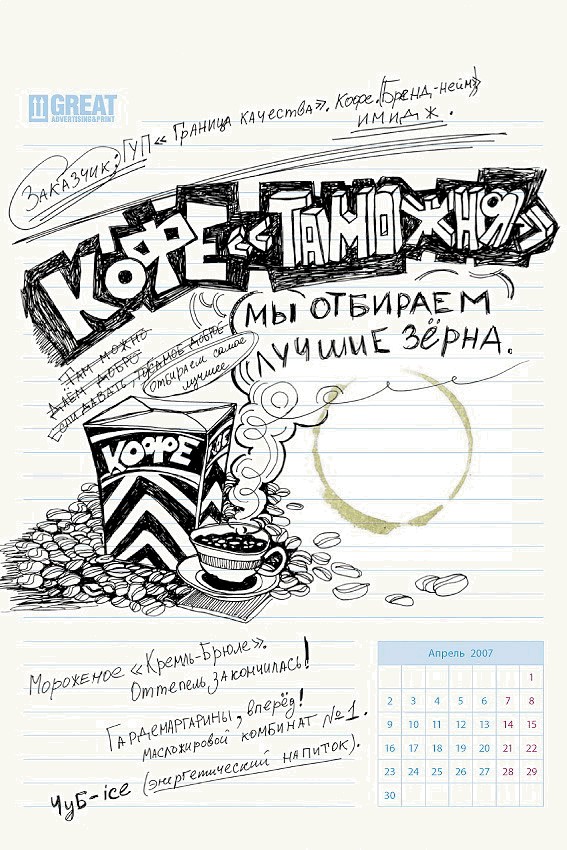 GREAT
ADVERTISING&PRINT
Заказчик: ГУП «Граница качества». Кофе. (Бренд-нейм)
имидж.
КОФЕ «ТАМОЖНЯ»
МЫ ОТБИРАЕМ
ЛУЧШИЕ ЗЁРНА.
Там можно
Даём добро
Если давать, то самое доброе
Отбираем самое
лучшее
КОФЕ
КОФЕ
Мороженое «Кремль-Брюле».
Оттепель закончилась!
Гардемаргарины, вперёд!
Масложировой комбинат №1.
Чуб-ice (энергетический напиток).
Апрель 2007
1
2 3 4 5 6 7 8
9 10 11 12 13 14 15
16 17 18 19 20 21 22
23 24 25 26 27 28 29
30